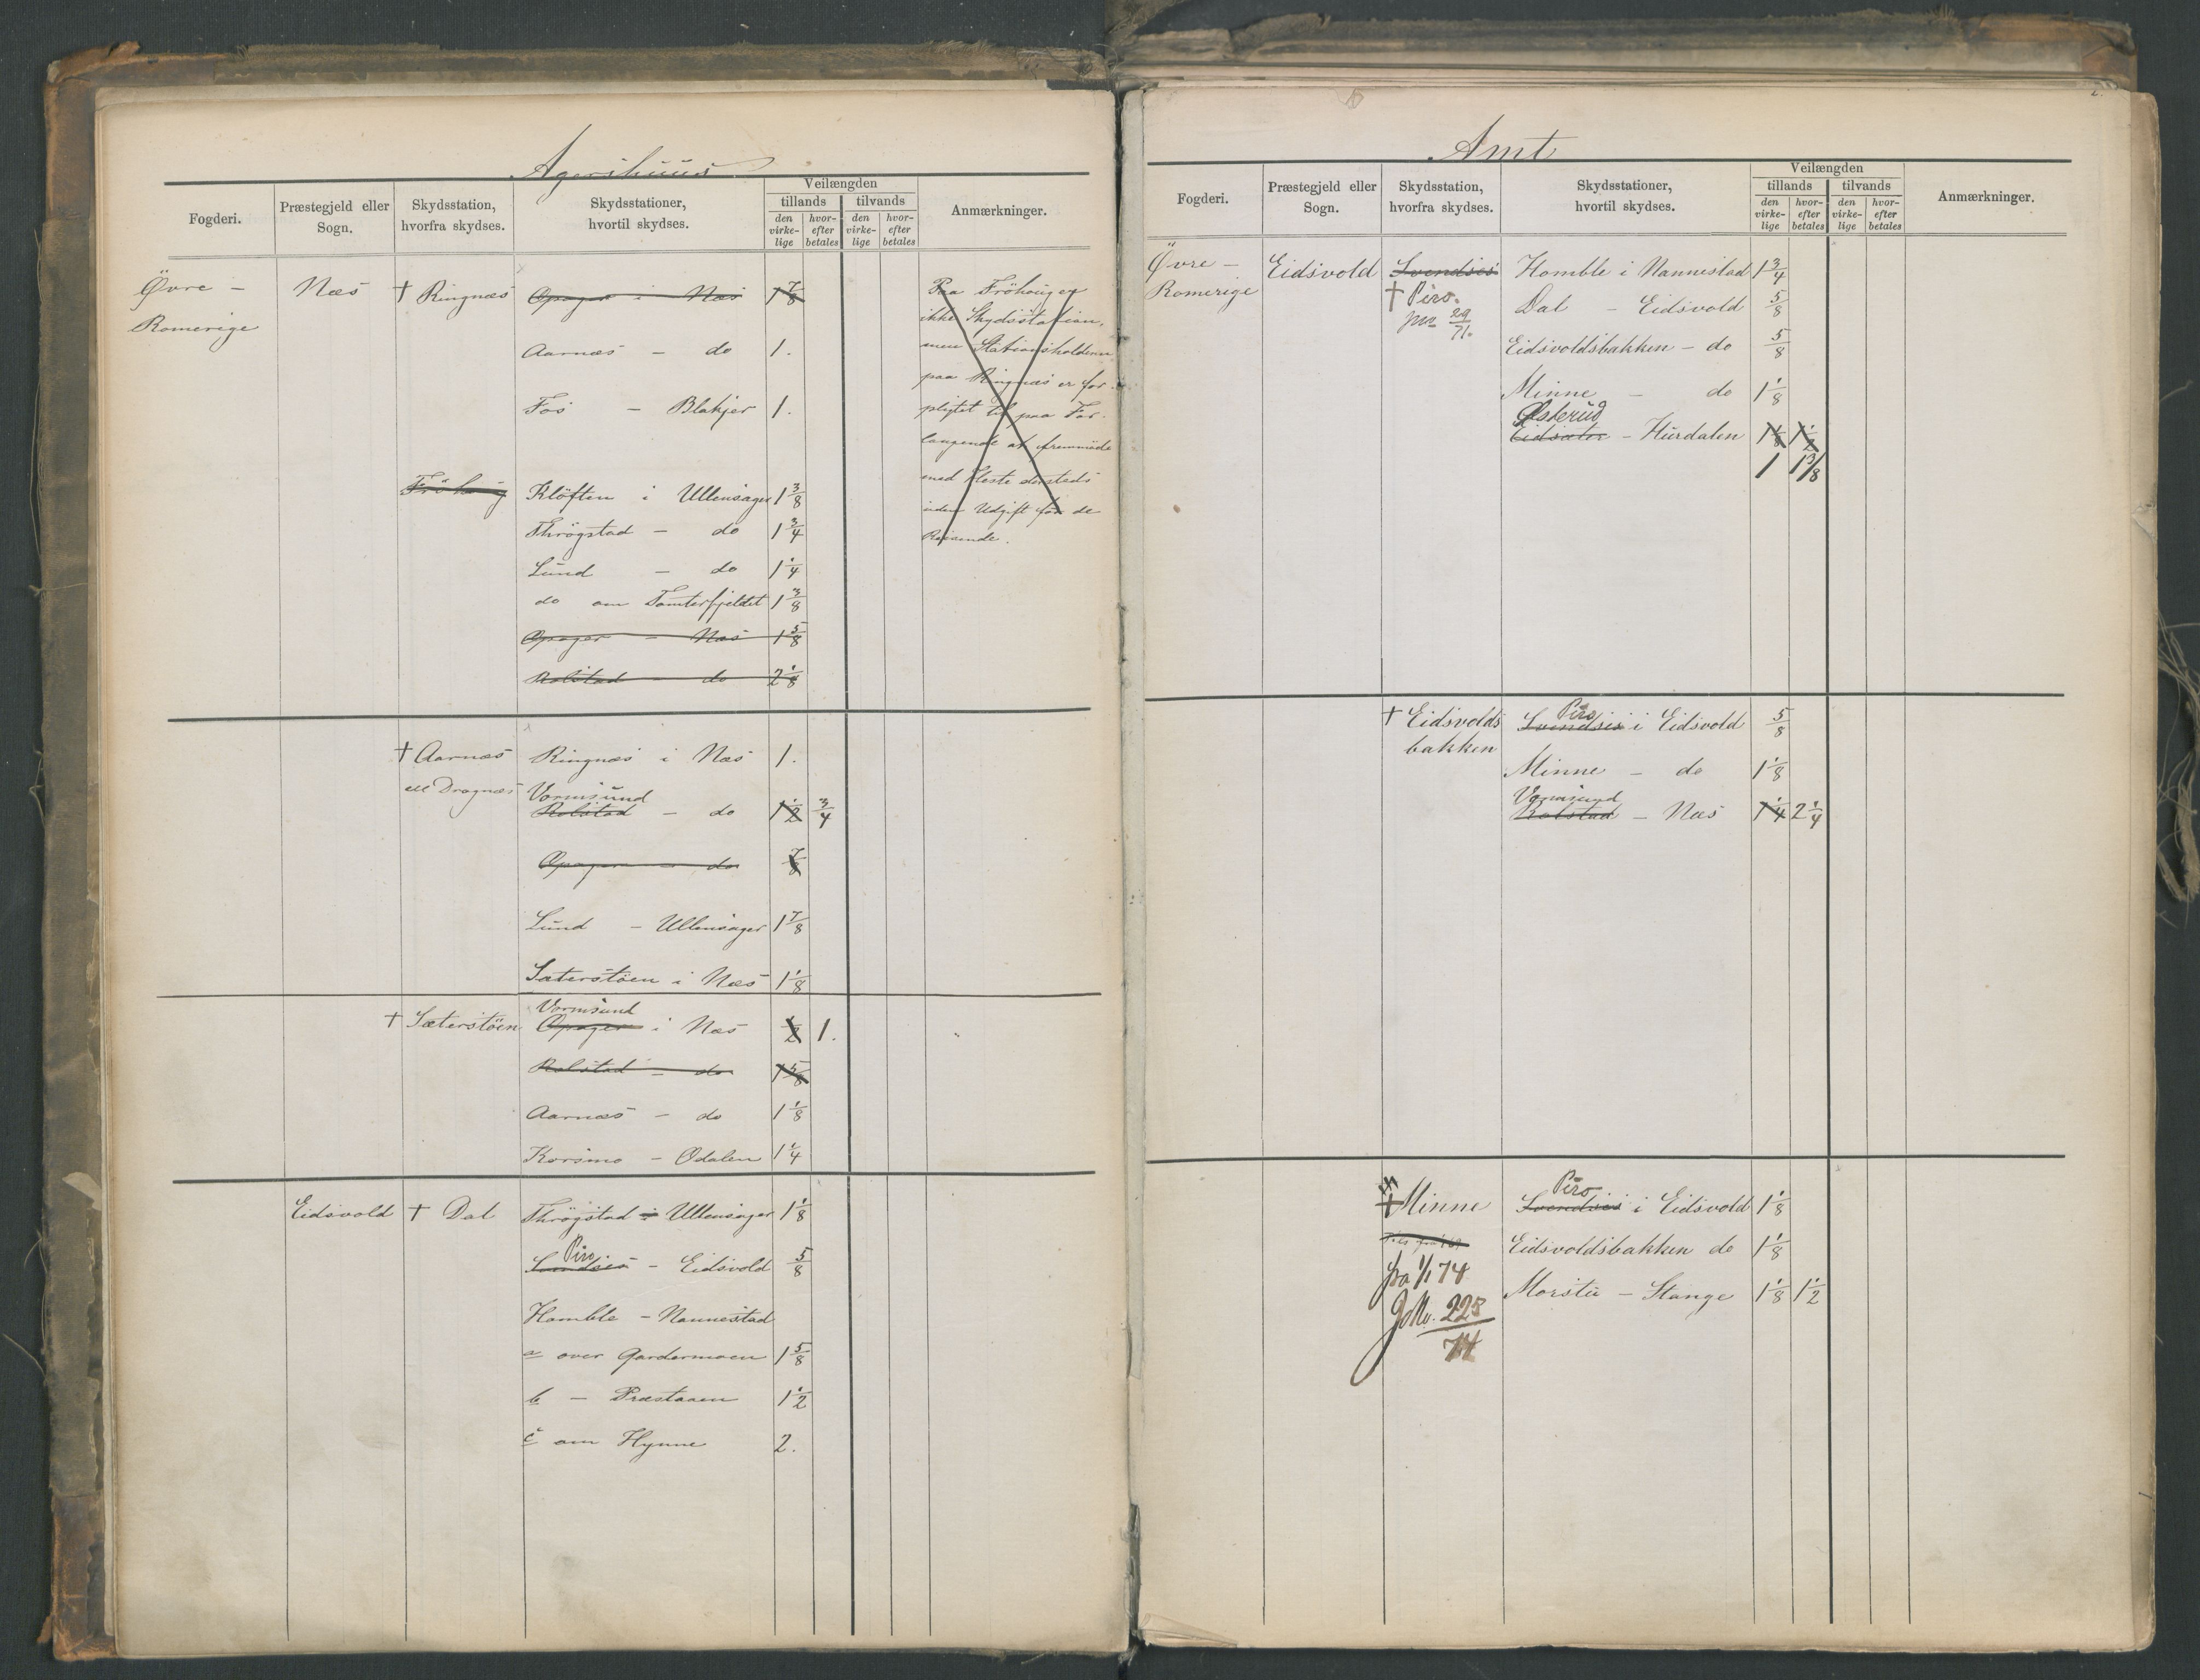 Agershuus
Fogderi. Præstegjeld eller Sogn. Skydsstation, hvorfra skydses. Skydsstationer, hvortil skydses. Veilængden tillands den virkelige hvorefter betales tilvands den virkelige hvorefter betales Anmærkninger.
Övre - Næs † Ringnæs Opager i Næs 1 7/8
Romerige
Aarnæs - do 1.
Fos - Blakjer 1.
Paa Fröhouger
ikke Skydsstation,
men Stationsholderen
paa Ringnæs er for-
pligtet til paa For-
langende at fremmöde
med Heste dersteds
uden Udgift for de
Reisende.
Fröhoug Klöften i Ullensager 1 3/8
Thrögstad - do 1 3/4
Lund - do 1 1/4
do om Tomterfjeldet 1 3/8
Opager - Næs 1 5/8
Rolstad - do 2 1/8
† Aarnæs Ringnæs i Næs 1.
ell Dragnæs Vormsund
Rolstad - do 1 1/2 3/4
Opager - do 7/8
Lund - Ullensager 1 7/8
Sæterstöen i Næs 1 1/8
Vormsund
† Sæterstöen Opager i Næs 1/2 1.
Rolstad - do 1 5/8
Aarnæs - do 1 1/8
Korsmo - Odalen 1 1/4
Eidsvold † Dal Thrögstad i Ullensager 1 1/8
Piro
Svendses - Eidsvold 5/8
Homble - Nannestad
a over Gardermoen 1 5/8
b - Præstaaen 1 1/2
c om Hynne 2.
2.
Amt
Fogderi. Præstegjeld eller Sogn. Skydsstation, hvorfra skydses. Skydsstationer, hvortil skydses. Veilængden tillands den virkelige hvorefter betales tilvands den virkelige hvorefter betales Anmærkninger.
Övre - Eidsvold Svendses Homble i Nannestad 1 3/4
Romerige † Piro. Dal - Eidsvold 5/8
29/71.
Eidsvoldsbakken - do 5/8
Minne - do 1 1/8
Østerud
Eidsæter - Hurdalen 1 1/8 1 1/2
1 1 3/8
Piro
† Eidsvolds Svendses i Eidsvold 5/8
bakken
Minne - do 1 1/8
Vormsund
Rolstad - Næs 1 1/4 2 1/4
Piro
† Minne Svendses i Eidsvold 1 1/8
Eidsvoldsbakken do 1 1/8
fra 1/1 74
Morstu - Stange 1 1/8 1 1/2
228
74